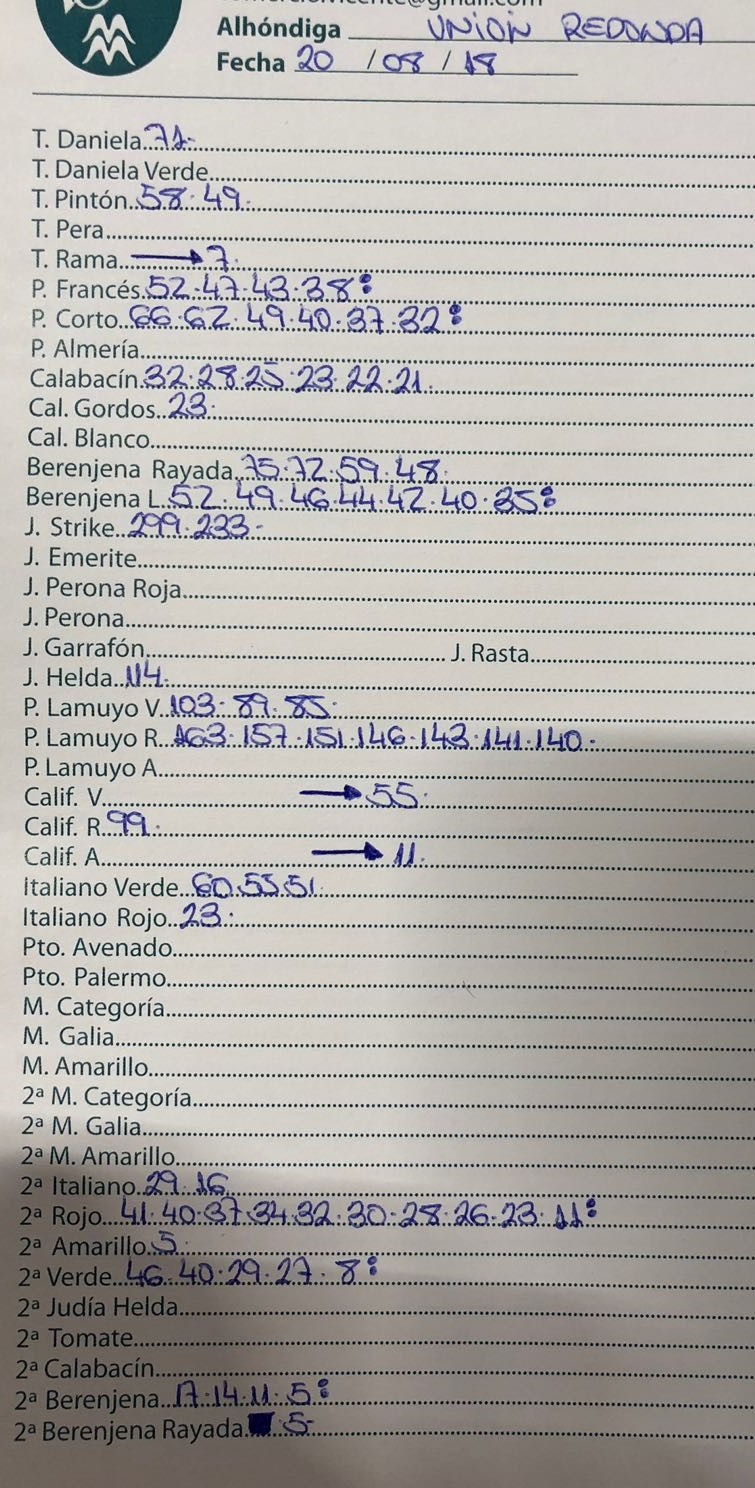 Alhóndiga UNION REDONDA
Fecha 20 / 08 / 18
T. Daniela..71.
T. Daniela Verde
T. Pintón..58.49.
T. Pera
T. Rama...→7.
P. Francés.52.47.43.38:
P. Corto..66.62.49.40.37.32:
P. Almería
Calabacín.32.28.25.23.22.21.
Cal. Gordos..23.
Cal. Blanco
Berenjena Rayada.75.72.59.48.
Berenjena L.52.49.46.44.42.40.35:
J. Strike..299.233.
J. Emerite
J. Perona Roja
J. Perona
J. Garrafón J. Rasta
J. Helda..114.
P. Lamuyo V..103.89.85.
P. Lamuyo R..163.157.151.146.143.141.140.
P. Lamuyo A
Calif. V. →55.
Calif. R..99.
Calif. A. →11.
Italiano Verde..60.55.51.
Italiano Rojo..23.
Pto. Avenado
Pto. Palermo
M. Categoría
M. Galia
M. Amarillo
2ª M. Categoría
2ª M. Galia
2ª M. Amarillo
2ª Italiano..29.16
2ª Rojo...41.40.37.34.32.30.28.26.23.11:
2ª Amarillo.5.
2ª Verde..46.40.29.27.8:
2ª Judía Helda
2ª Tomate
2ª Calabacín
2ª Berenjena..17.14.11.5:
2ª Berenjena Rayada 5.